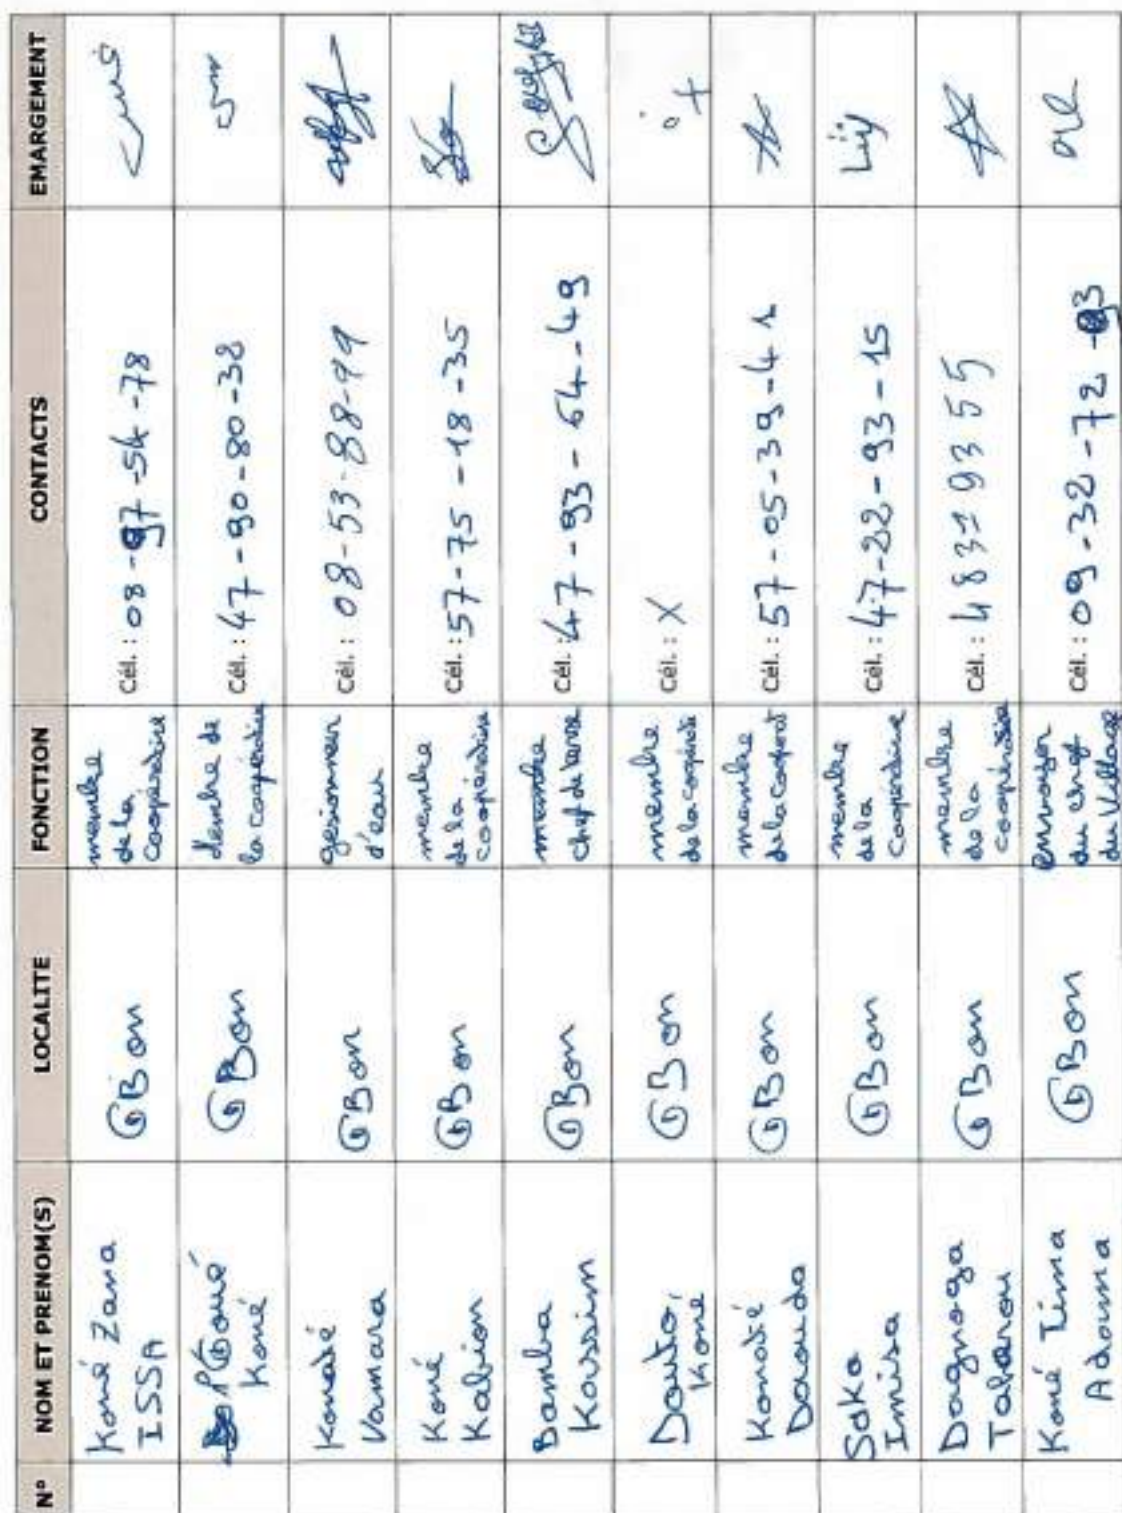 N° NOM ET PRENOM(S) LOCALITE FONCTION CONTACTS EMARGEMENT
Koné Zana
ISSA
GBon
membre
de la
Coopérative
Cél. : 08-97-54-78
Koné
GBon
Membre de
la coopérative
Cél. : 47-90-80-38
Konaté
Vamara
GBon
gesionneur
d'eau
Cél. : 08-53-88-99
Koné
Kabion
GBon
membre
de la
coopérative
Cél. : 57-75-18-35
Bamba
Kassim
GBon
membre
chef de terre
Cél. : 47-93-64-49
Daouto,
Koné
GBon
membre
de la coopérati
Cél. : X
Konaté
Daouda
GBon
membre
de la coopérat
Cél. : 57-05-39-41
Soko
Imisa
GBon
membre
de la
Coopérative
Cél. : 47-22-93-15
Dagnoga
Tabarou
GBon
membre
de la
coopérative
Cél. : 48319355
Koné Tima
Adama
GBon
envoyer
du chef
du Village
Cél. : 09-32-72-93